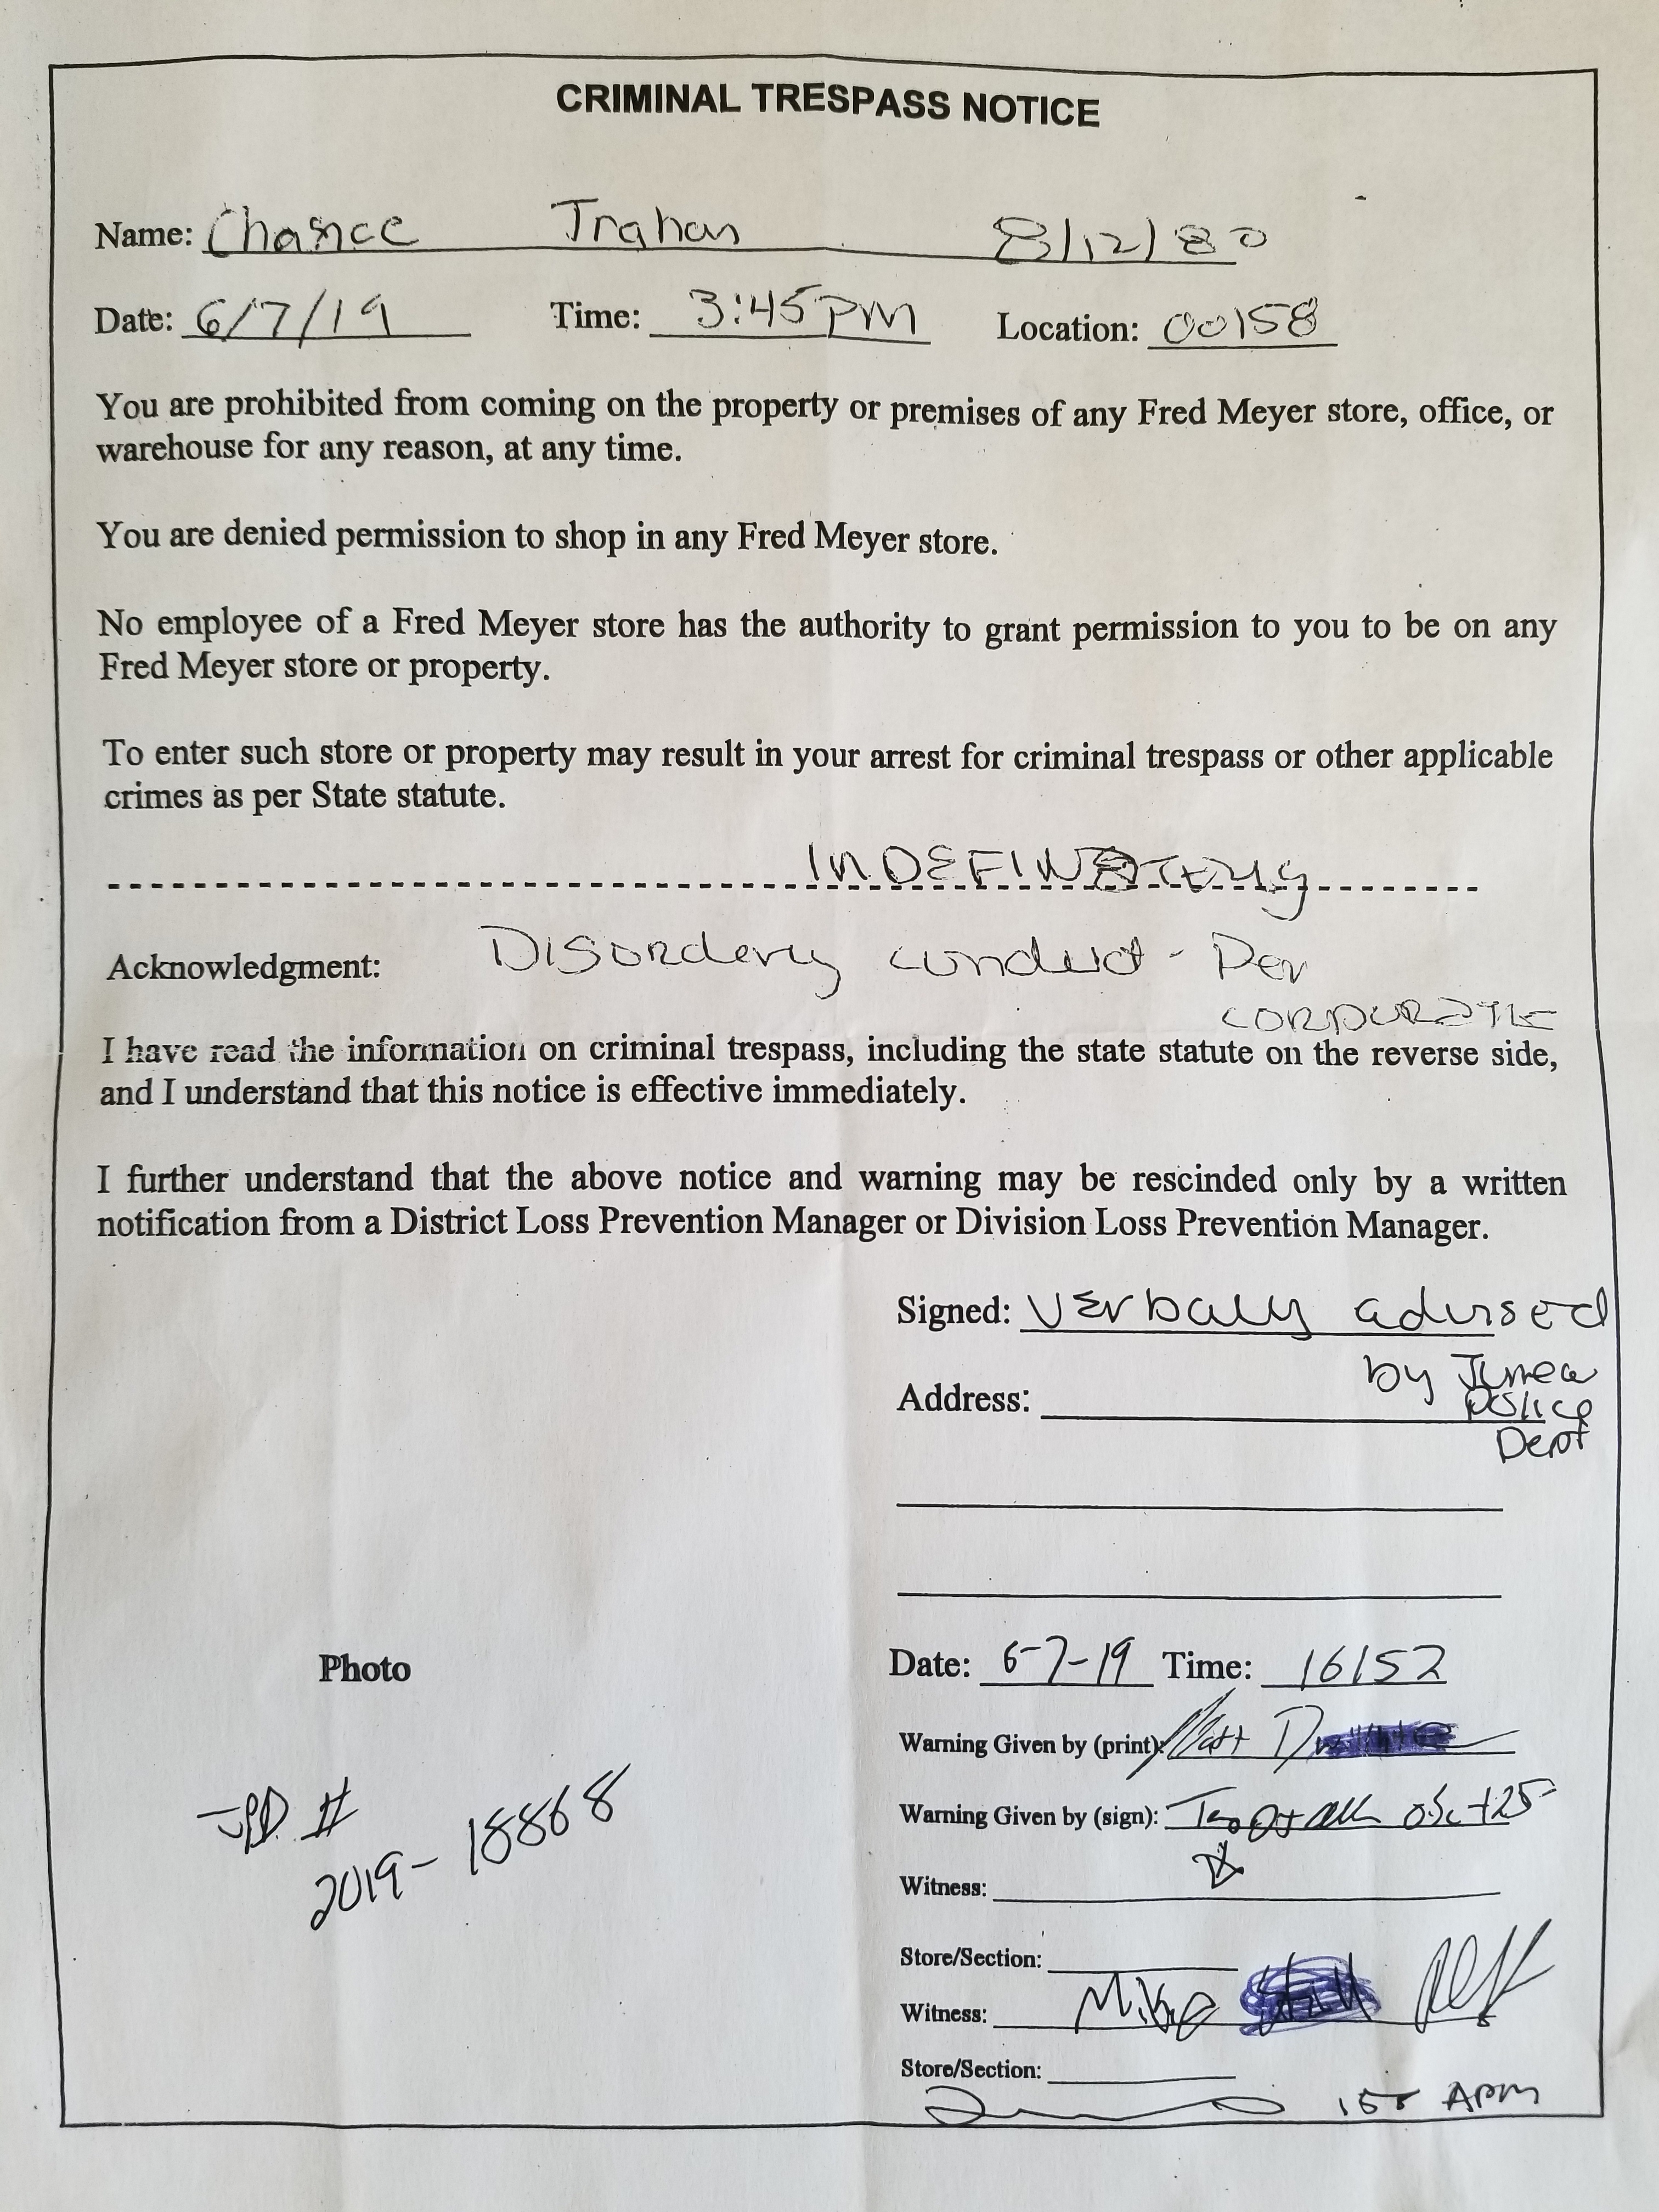 CRIMINAL TRESPASS NOTICE
Name: Chance Trahan 8/12/80
Date: 6/7/19 Time: 3:45 PM Location: 00158
You are prohibited from coming on the property or premises of any Fred Meyer store, office, or
warehouse for any reason, at any time.
You are denied permission to shop in any Fred Meyer store.
No employee of a Fred Meyer store has the authority to grant permission to you to be on any
Fred Meyer store or property.
To enter such store or property may result in your arrest for criminal trespass or other applicable
crimes as per State statute.
INDEFINETELY
Acknowledgment: Disorderly conduct - Per
corporate
I have read the information on criminal trespass, including the state statute on the reverse side,
and I understand that this notice is effective immediately.
I further understand that the above notice and warning may be rescinded only by a written
notification from a District Loss Prevention Manager or Division Loss Prevention Manager.
Signed: Verbally advised
by Junea
Address: Police
Dept
Photo
Date: 6-7-19 Time: 16152
Warning Given by (print): Matt
Warning Given by (sign):
JPD #
2019-18868
Witness:
Store/Section:
Witness: Mike
Store/Section:
APM